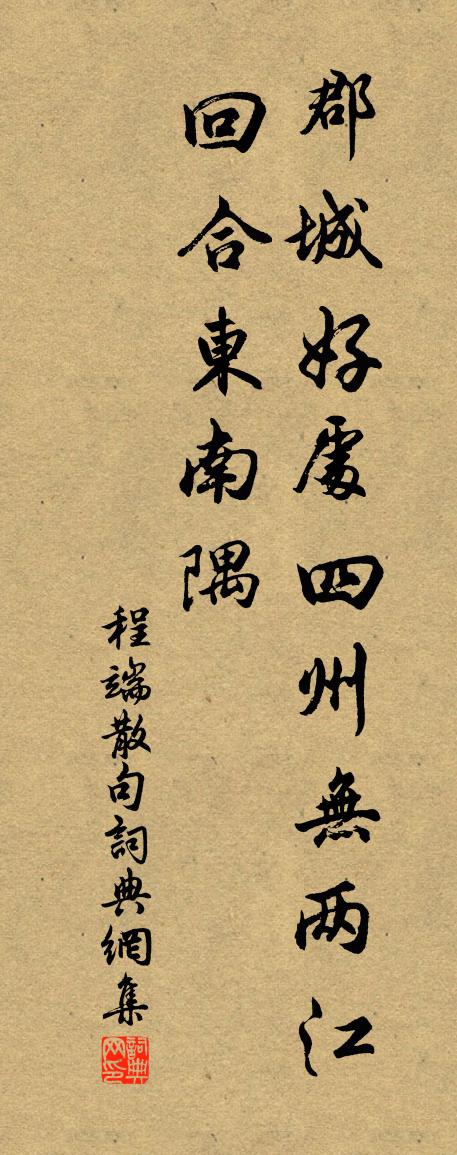 郡城好處四州無两江
回合東南隅
程端散句詞典網集
詞典
网印